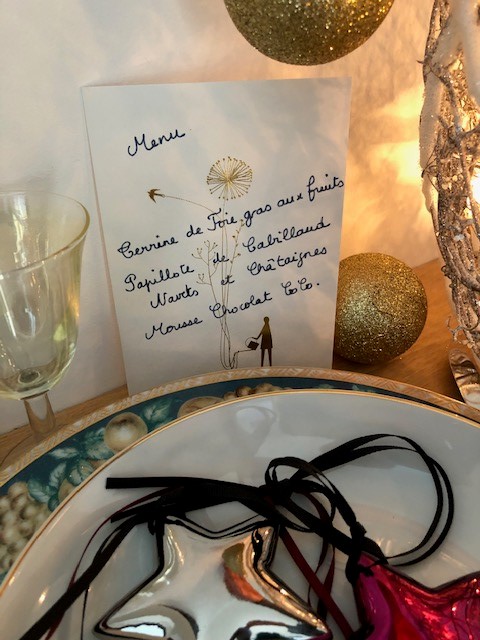 Menu
Terrine de Foie gras aux fruits
Papillote de Cabillaud
Navets et Châtaignes
Mousse Chocolat CoCo.